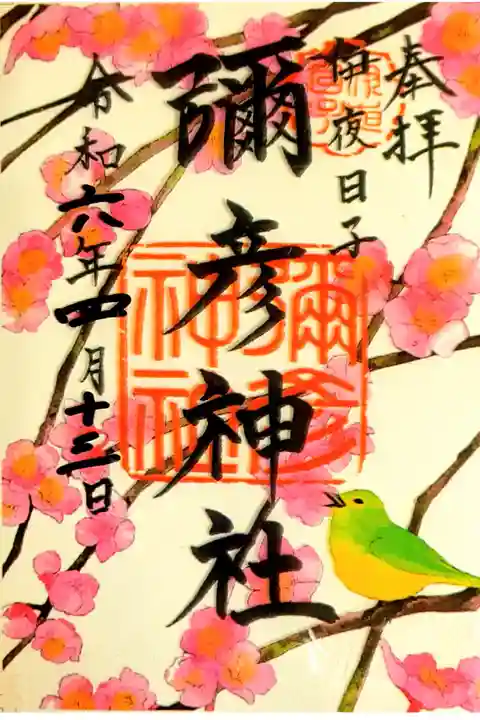 奉拝
伊夜日子
彌彦神社
令和六年四月十三日
彌彦
神社